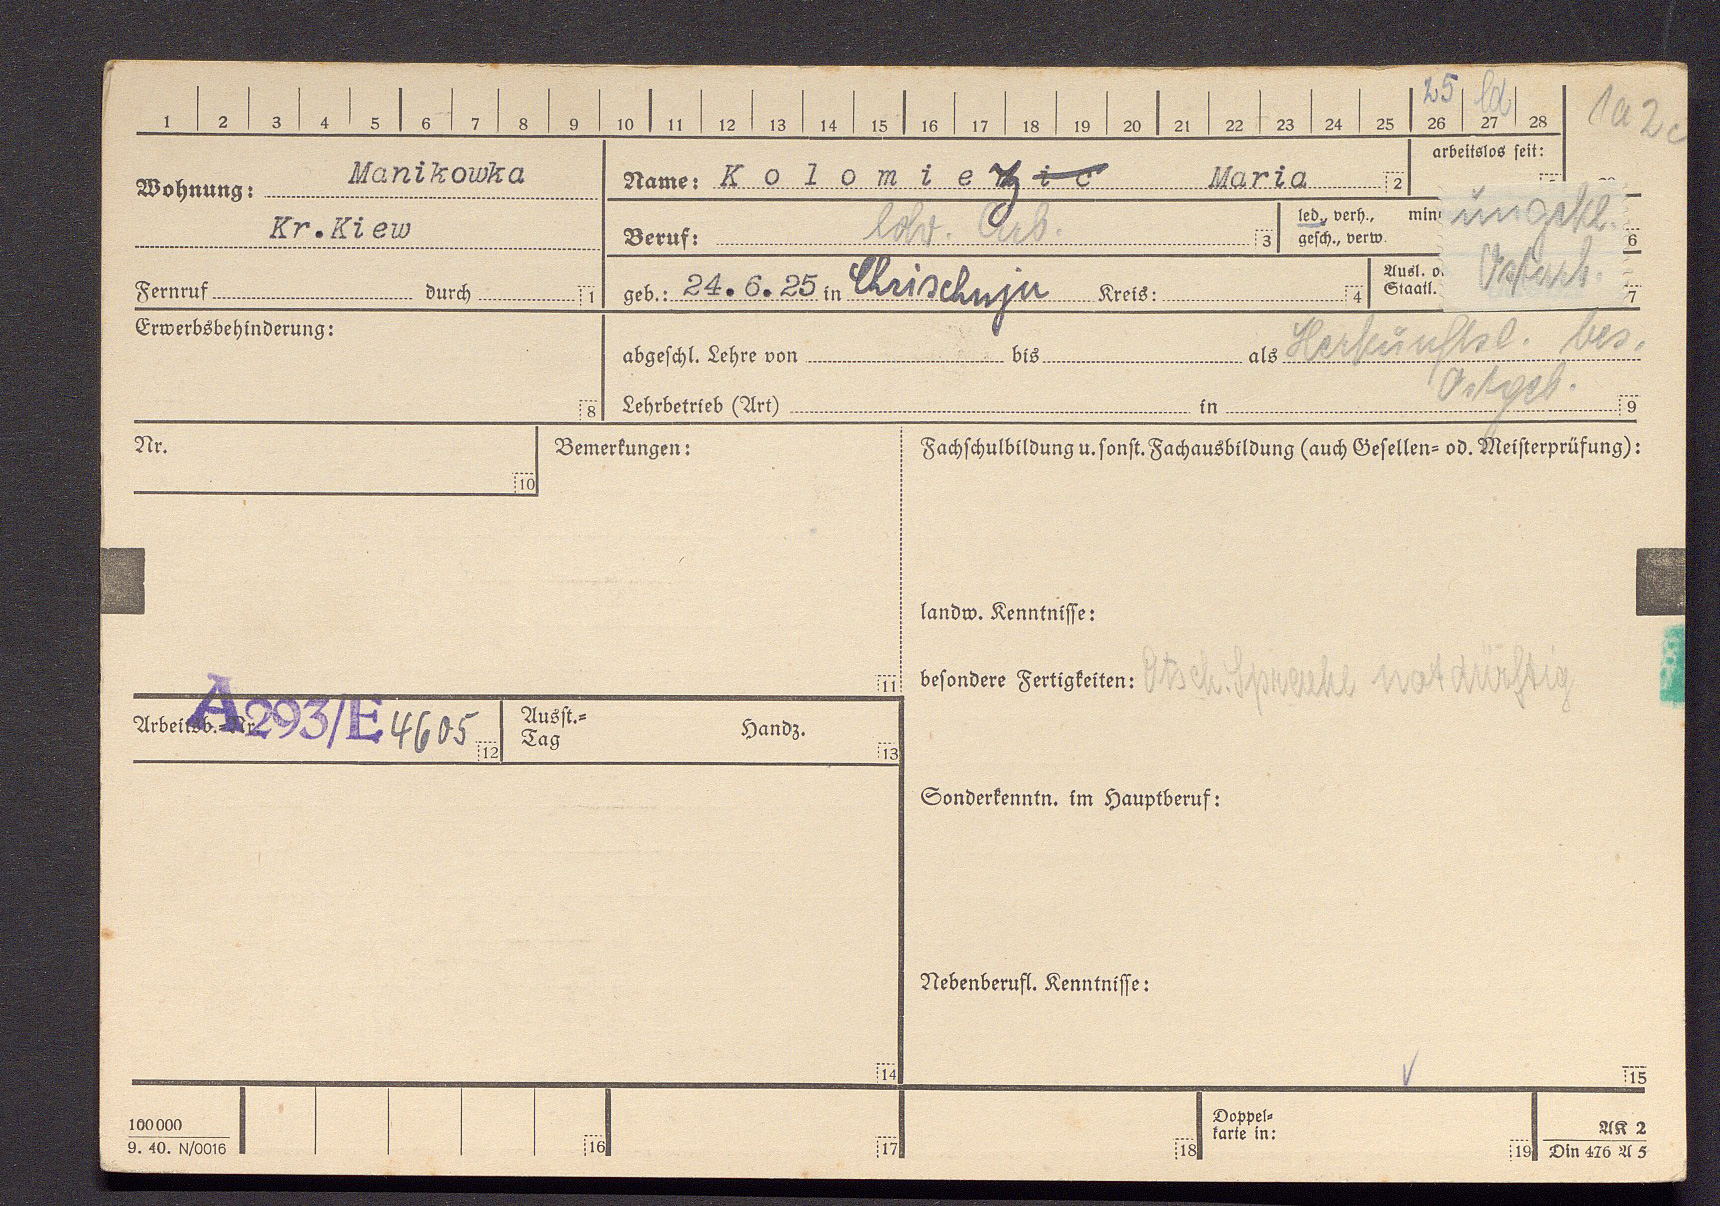 25 ld 1a 2c
1 2 3 4 5 6 7 8 9 10 11 12 13 14 15 16 17 18 19 20 21 22 23 24 25 26 27 28
arbeitslos seit:
Wohnung: Manikowka
Name: Kolomiez ic Maria 2
Kr.Kiew
Beruf: ldw. Arb. 3
led., verh., min
gesch., verw.
ungekl. 6
Fernruf durch 1
geb.: 24.6.25 in Chrischnju Kreis: 4
Ausl. o.
Staatl.
Ostarb. 7
Erwerbsbehinderung: 8
abgeschl. Lehre von bis als Herkunftsl. bes.
Ostgeb.
Lehrbetrieb (Art) in 9
Nr. 10
Bemerkungen: 11
Fachschulbildung u. sonst. Fachausbildung (auch Gesellen- od. Meisterprüfung):
landw. Kenntnisse:
besondere Fertigkeiten: Dtsch. Sprache notdürftig
Arbeitsb.-Nr. A293/E 4605 12
Ausst.-
Tag
Handz. 13
Sonderkenntn. im Hauptberuf:
Nebenberufl. Kenntnisse:
14 15
100 000
9. 40. N/0016
16 17 18
Doppel-
karte in: 19
AK 2
Din 476 A 5